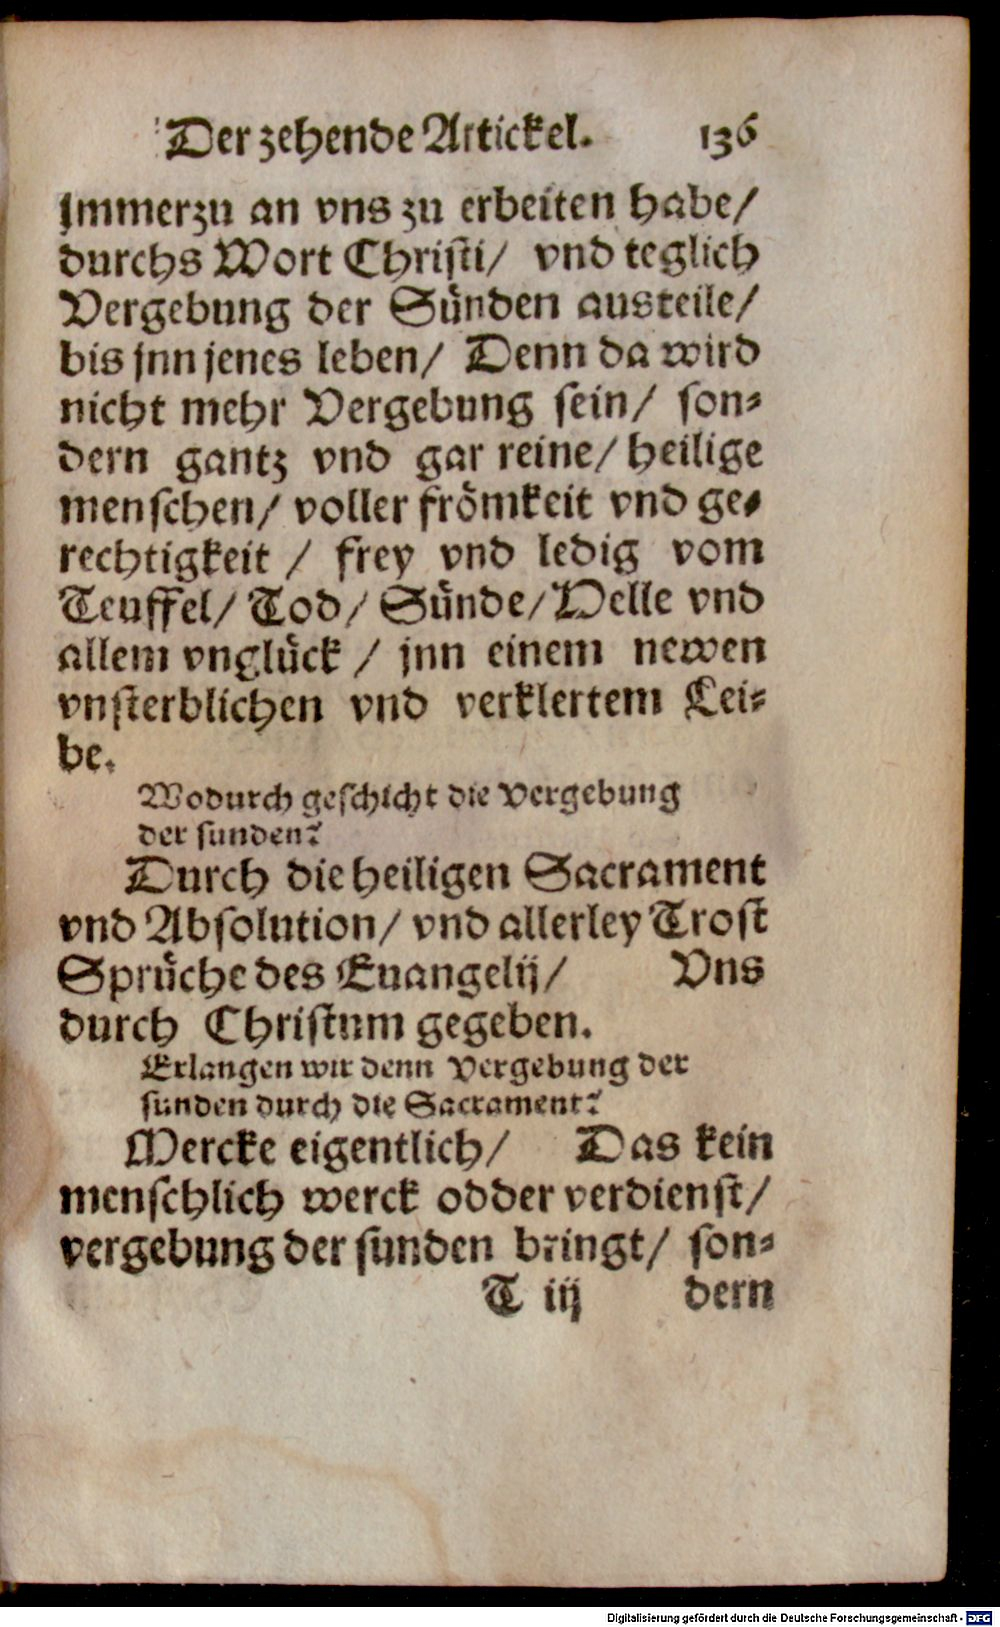 Der zehende Artickel. 136
jmmerzu an vns zu erbeiten habe/
durchs Wort Christi/ vnd teglich
Vergebung der Sünden austeile/
bis jnn jenes leben/ Denn da wird
nicht mehr Vergebung sein/ son⸗
dern gantz vnd gar reine/ heilige
menschen/ voller frömkeit vnd ge⸗
rechtigkeit / frey vnd ledig vom
Teuffel/ Tod/ Sünde/ Helle vnd
allem vnglück / jnn einem newen
vnsterblichen vnd verklertem Lei⸗
be.
Wodurch geschicht die vergebung
der sunden?
Durch die heiligen Sacrament
vnd Absolution/ vnd allerley Trost
Sprüche des Euangelij/ Vns
durch Christum gegeben.
Erlangen wir denn vergebung der
sunden durch die Sacrament?
Mercke eigentlich/ Das kein
menschlich werck odder verdienst/
vergebung der sunden bringt/ son⸗
T iij dern
Digitalisierung gefördert durch die Deutsche Forschungsgemeinschaft - DFG